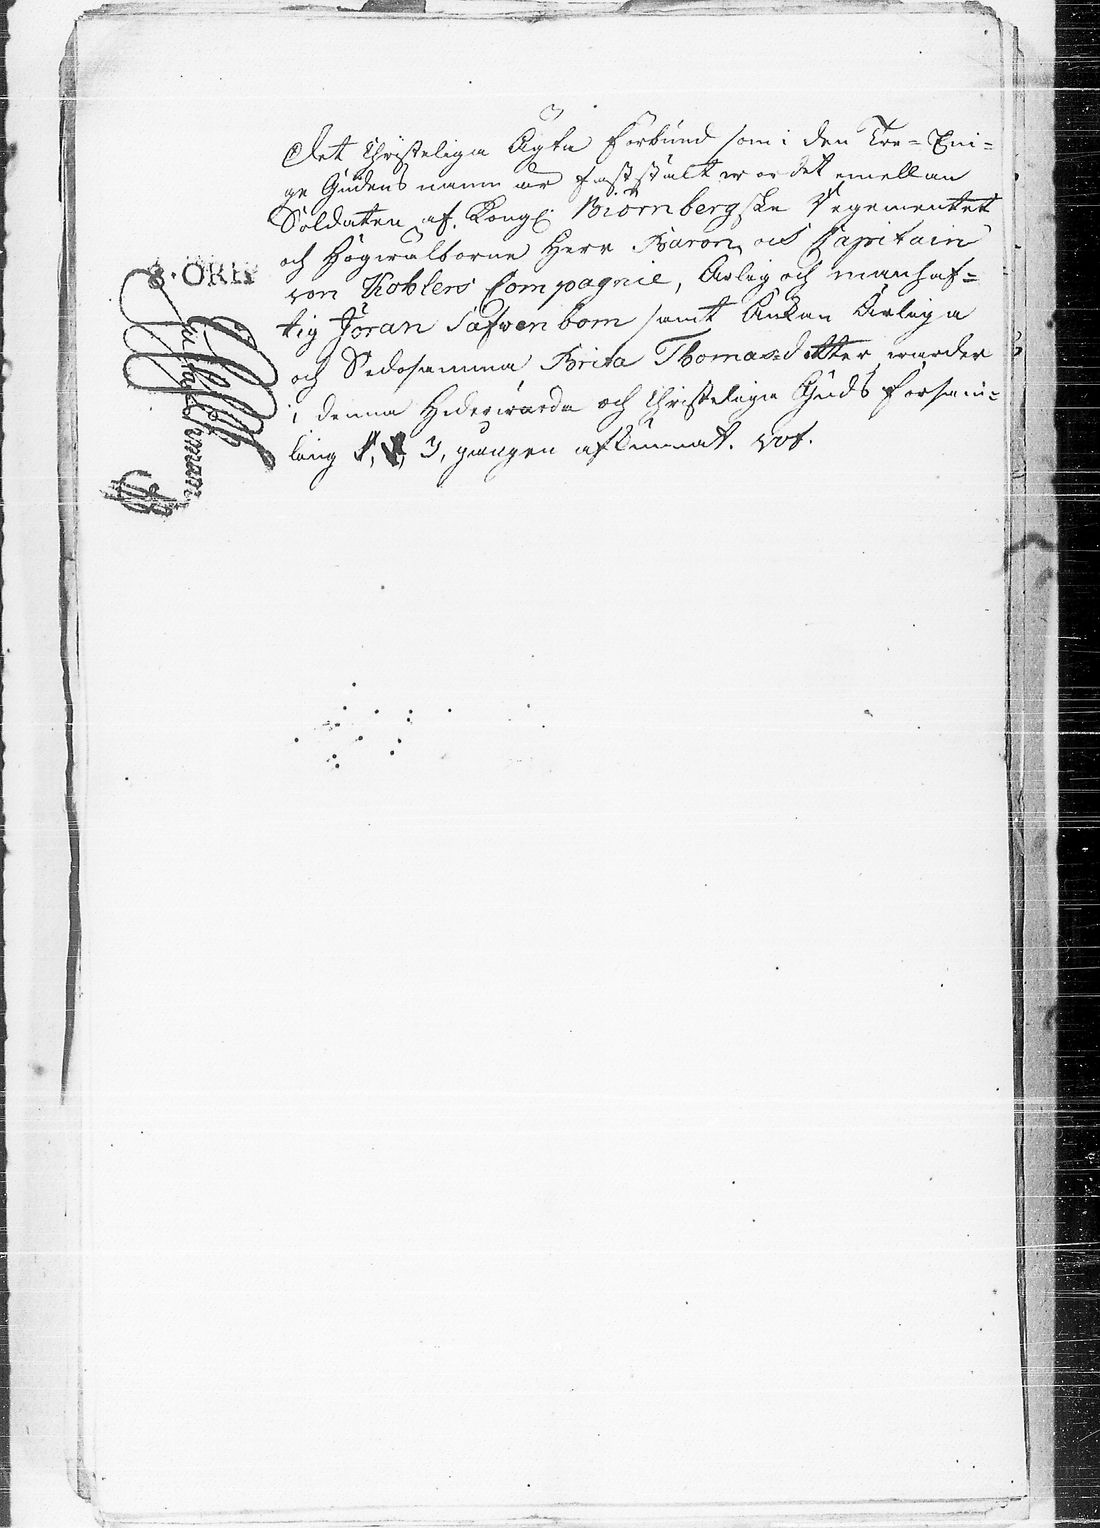 Det Christeliga Ägta förbund som i den Tre=Eni=
ge Gudens namn är fastställt wordet emellan
Soldaten af. Kongl: Biörnbergske Regementet
och Högwälborne Herr Baron och Capitain
von Kohlers Compagnie, Ärlig och manhaf=
tig Jöran Säfvenbom samt Änkan Ärliga
och Sedosamma Brita Thomasdotter, warder
i, denna Hederwärda och Christeliga Guds försam=
ling 1, 2, 3, gången afkunnat.
8. ÖRE